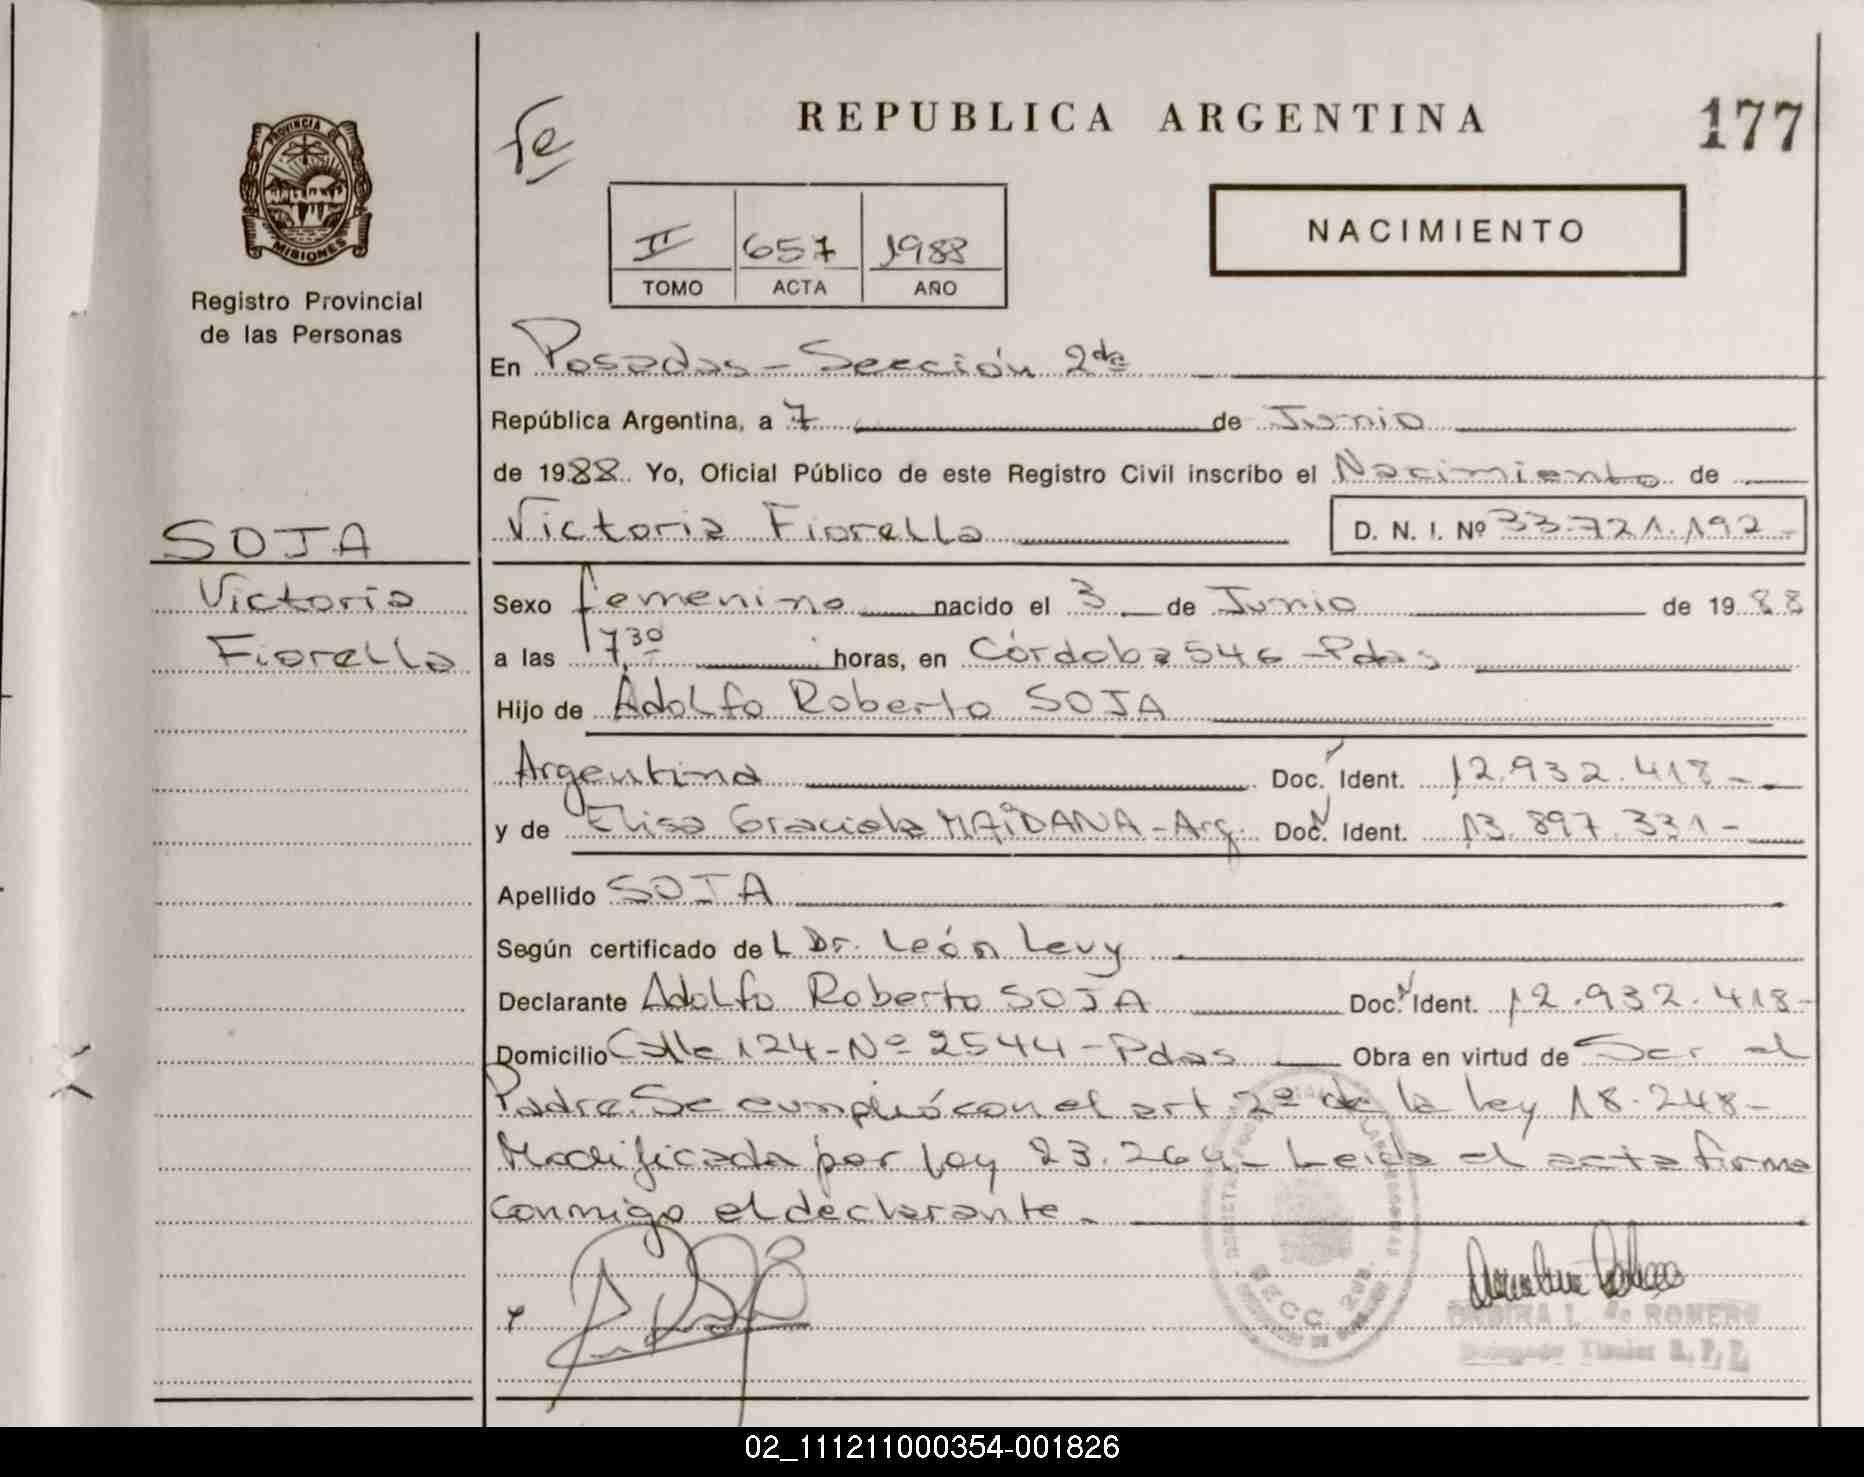 PROVINCIA DE
MISIONES
Registro Provincial
de las Personas
SOJA
Victoria
Fiorella
Fe
REPUBLICA ARGENTINA
177
II 657 1988
TOMO ACTA AÑO
NACIMIENTO
En Posadas - Sección 2da
República Argentina, a 7 de Junio
de 1988. Yo, Oficial Público de este Registro Civil inscribo el Nacimiento de
Victoria Fiorella D. N. I. Nº 33.721.192-
Sexo femenino nacido el 3 de Junio de 1988
a las 17,30 horas, en Córdoba 546 - Pdas
Hijo de Adolfo Roberto SOJA
Argentina Doc. Ident. 12.932.418-
y de Elisa Graciela MAIDANA - Arg. Doc. Ident. 13.897.331-
Apellido SOJA
Según certificado del Dr. León Levy
Declarante Adolfo Roberto SOJA Doc. Ident. 12.932.418-
Domicilio Calle 124 - Nº 2544 - Pdas Obra en virtud de Ser el
Padre. Se cumplió con el art. 2º de la ley 18.248-
Modificada por ley 23.264- Leida el acta firma
conmigo el declarante.-
SECC. 2DA.
L. de ROMERO
Titular R.P.P.
02_111211000354-001826